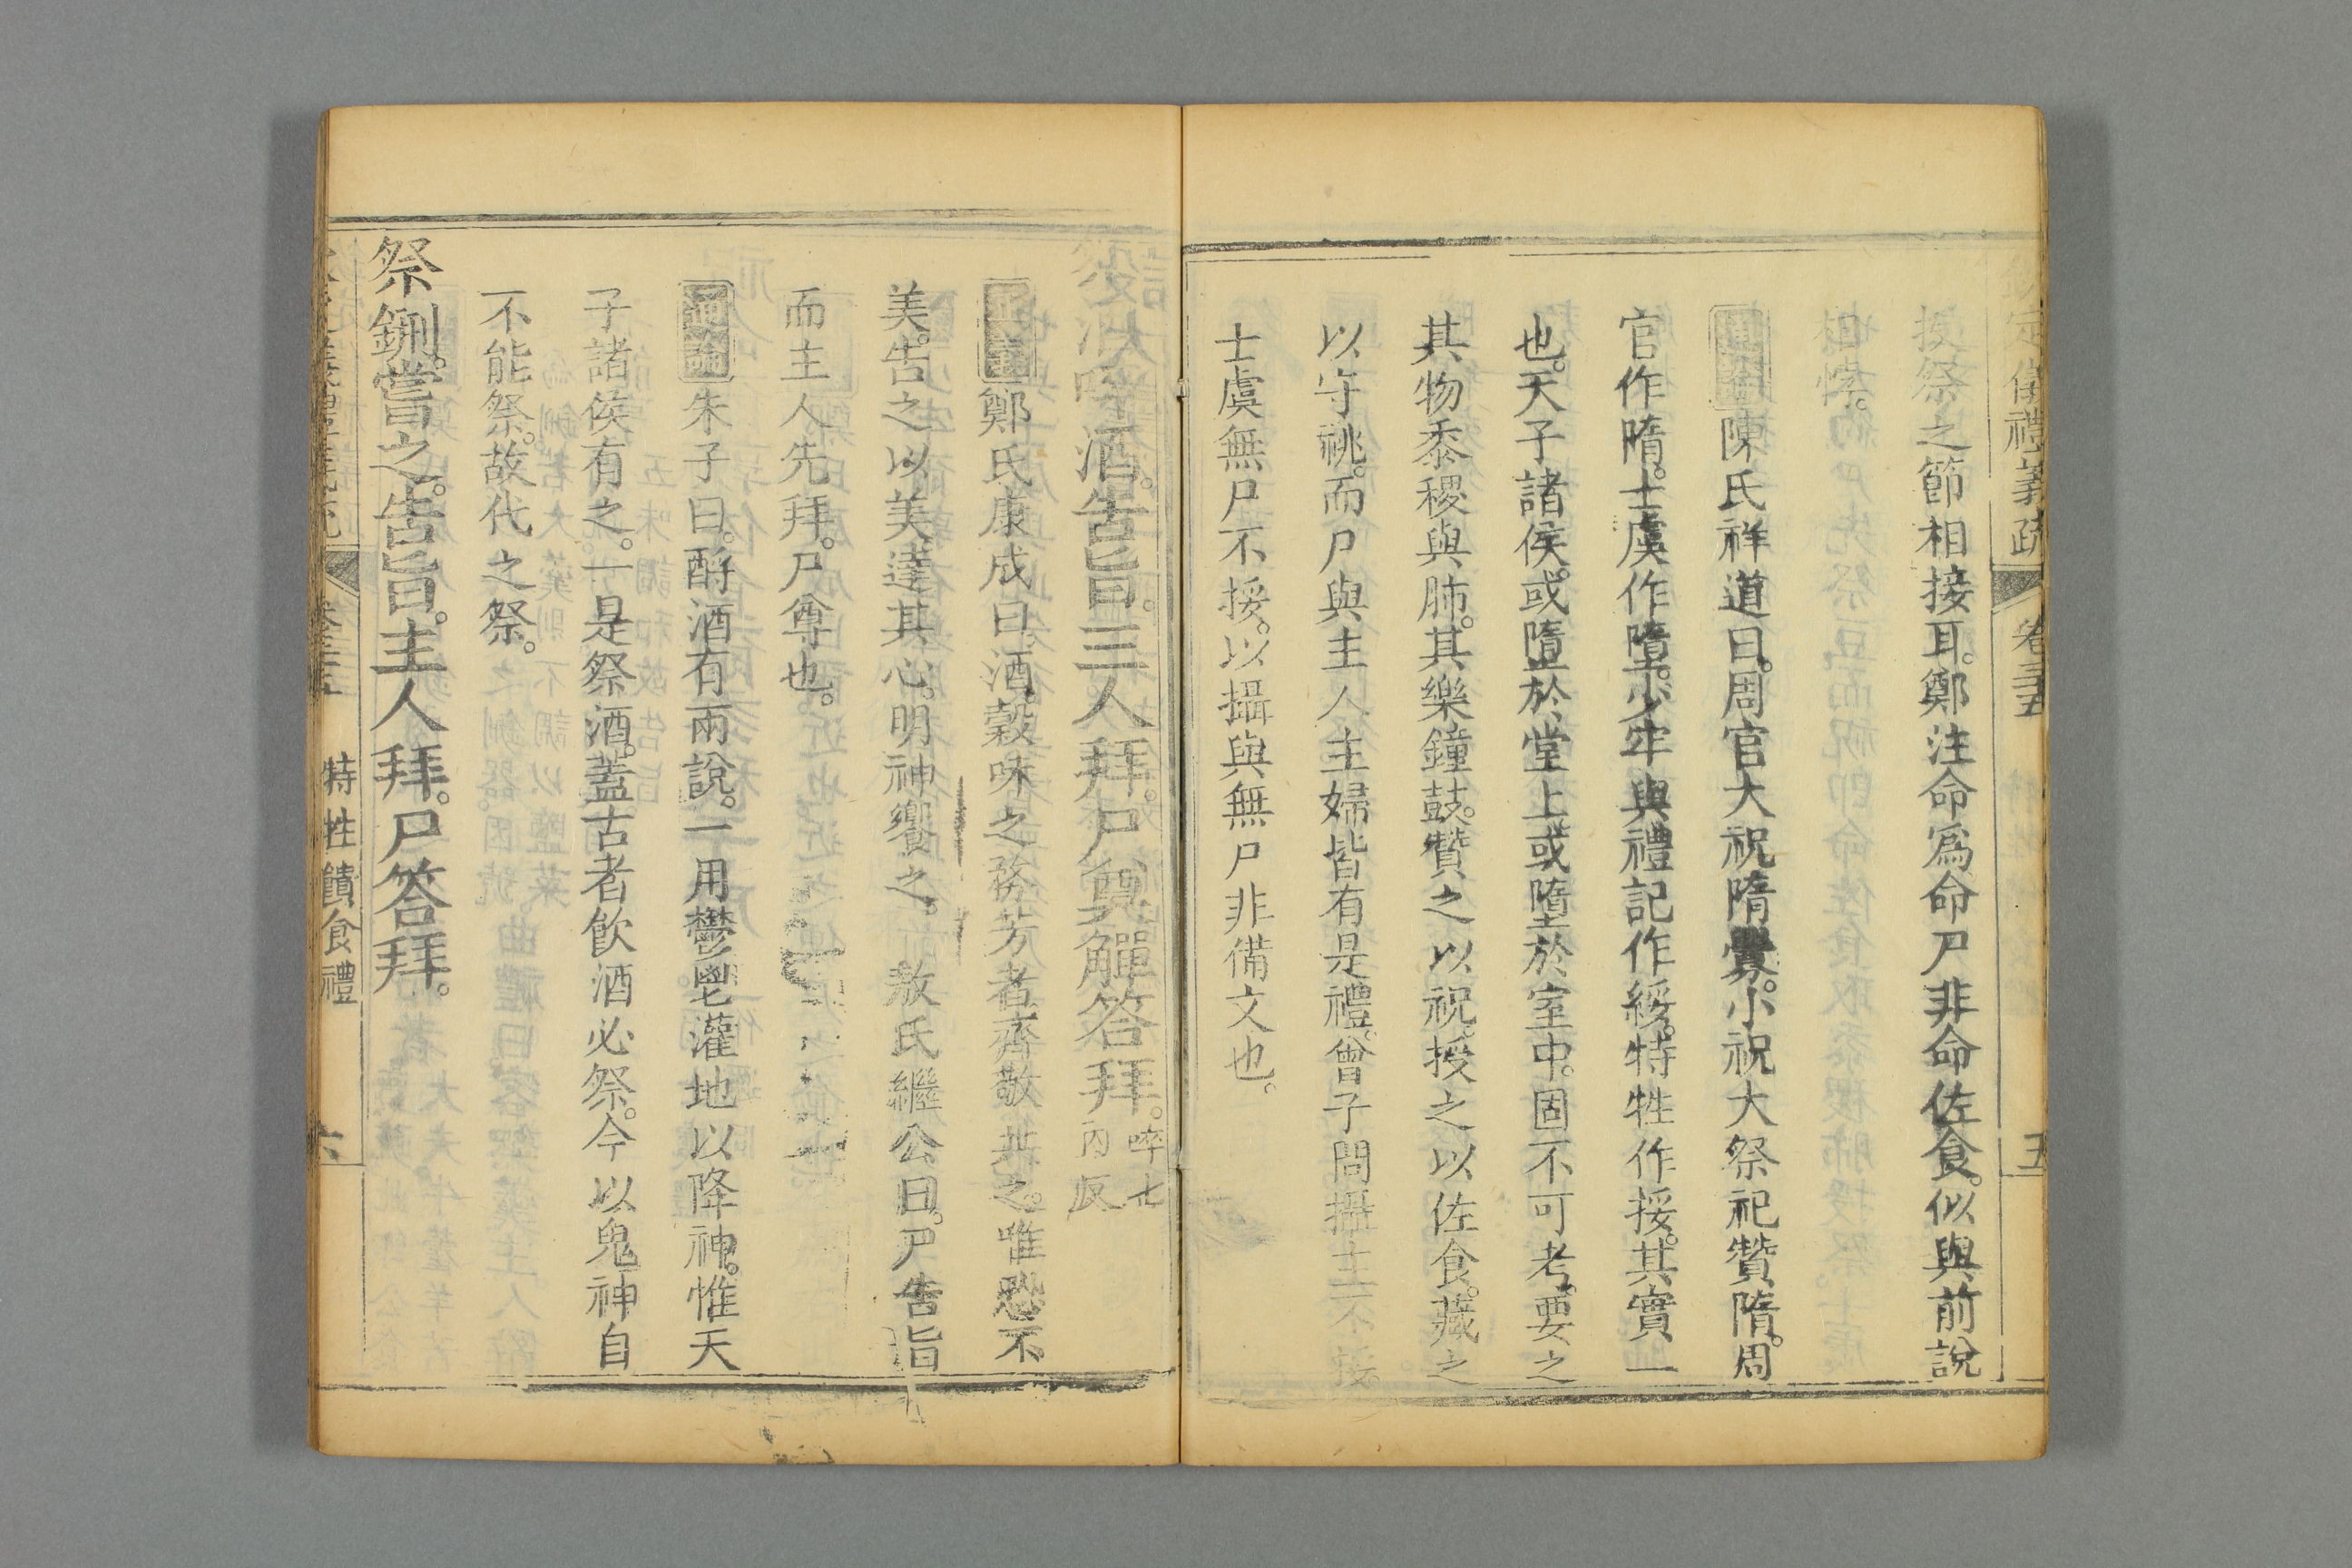 定儀禮義疏 卷三十五 五
挼祭之節相接耳。鄭注命爲命尸非命佐食。似與前說
陳氏祥道曰。周官大祝隋釁。小祝大祭祀贊隋。周
官作隋。士虞作墮。少牢與禮記作綏。特牲作挼。其實一
也。天子諸侯。或墮於堂上或墮於室中。固不可考。要之
其物黍稷與肺。其樂鐘鼓。贊之以祝。授之以佐食。藏之
以守祧。而尸與主人主婦皆有是禮。曾子問攝主不挼
士虞無尸不挼。以攝與無尸非備文也。
啐酒。告旨。主人拜。尸奠觶答拜。啐七
內反
正義鄭氏康成曰酒。穀味之芬芳者。齊敬共之。唯恐不
美。告之以美。達其心。明神饗之。 敖氏繼公曰。尸告旨
而主人先拜。尸尊也。
通論朱子曰。酹酒有兩說。一用鬱鬯灌地以降神。惟天
子諸侯有之。一是祭酒。蓋古者飲酒必祭。今以鬼神自
不能祭。故代之祭。
祭鉶。嘗之。告旨。主人拜。尸答拜。
特牲饋食禮 六